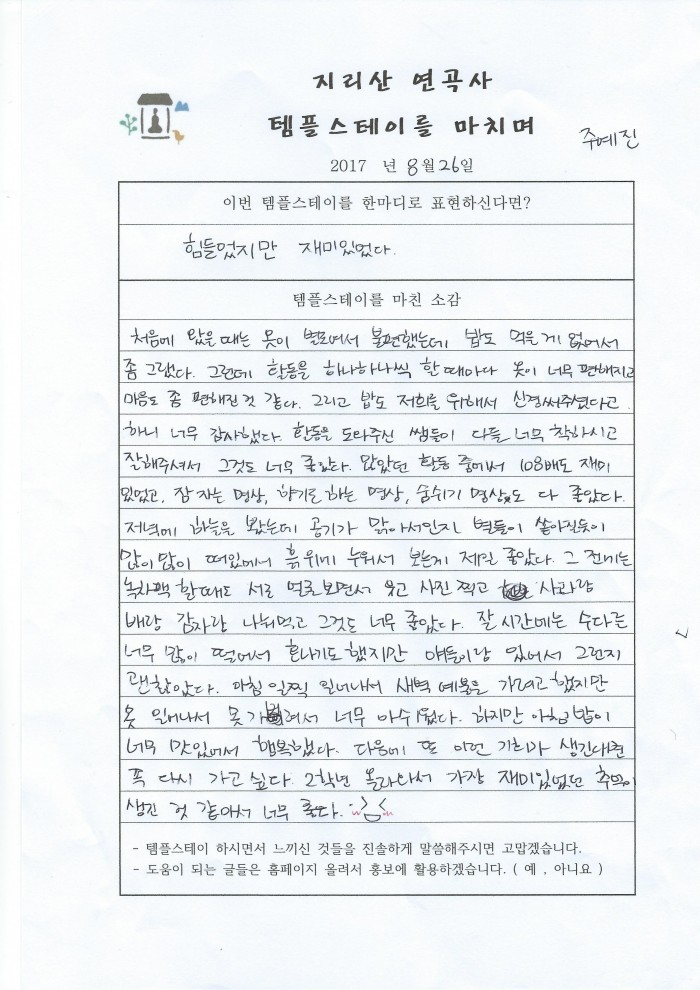 지리산 연곡사
템플스테이를 마치며
주예진
2017 년 8월 26일
이번 템플스테이를 한마디로 표현하신다면?
힘들었지만 재미있었다.
템플스테이를 마친 소감
처음에 왔을 때는 옷이 별로여서 불편했는데 밥도 먹을 게 없어서
좀 그랬다. 그런데 활동을 하나하나씩 할 때마다 옷이 너무 편해지고
마음도 좀 편해진 것 같다. 그리고 밥도 저희를 위해서 신경써주셨다고
하니 너무 감사했다. 활동을 도와주신 쌤들이 다들 너무 착하시고
잘해주셔서 그것도 너무 좋았다. 왔었던 활동 중에서 108배도 재미
있었고, 잠 자는 명상, 향기도 하는 명상, 숨쉬기 명상도 다 좋았다.
저녁에 하늘을 봤는데 공기가 맑아서인지 별들이 쏟아질듯이
많이많이 떠있어서 흙위에 누워서 보는게 제일 좋았다. 그 전에는
녹차팩 할때도 서로 얼굴보면서 웃고 사진 찍고 사과랑
배랑 감자랑 나눠먹고 그것도 너무 좋았다. 잘 시간에는 수다를
너무 많이 떨어서 혼나기도 했지만 얘들이랑 있어서 그런지
괜찮았다. 아침 일찍 일어나서 새벽 예불을 가려고 했지만
못 일어나서 못 가려서 너무 아쉬웠다. 하지만 아침 밥이
너무 맛있어서 행복했다. 다음에 또 이런 기회가 생긴다면
꼭 다시 가고 싶다. 2학년 올라와서 가장 재미있었던 추억이
생긴 것 같아서 너무 좋다.
- 템플스테이 하시면서 느끼신 것들을 진솔하게 말씀해주시면 고맙겠습니다.
- 도움이 되는 글들은 홈페이지 올려서 홍보에 활용하겠습니다. ( 예 , 아니요 )